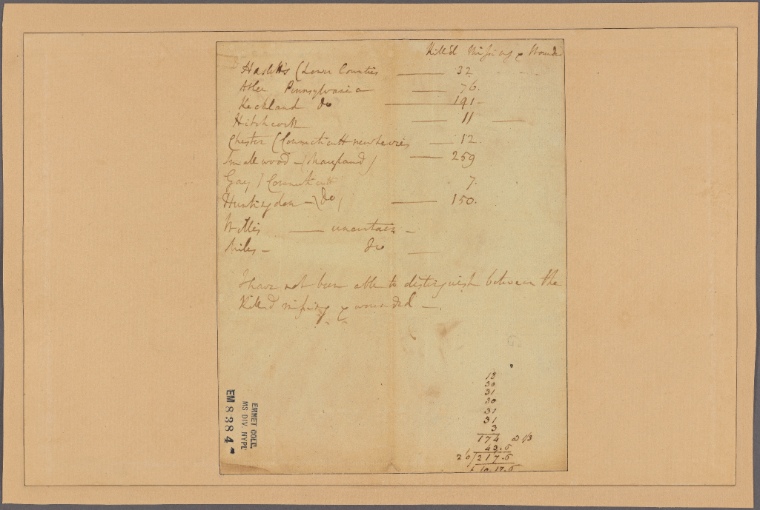 Kill'd Missing & Wound
Haslets (Lower Counties — 32
Atlee Pennsylvania — 76.
Keichland do — 191
Hitchcock — 11
Chester (Connecticutt new levies — 12.
Smallwood — (Maryland) — 259
Gay) Connecticutt 7.
Huntingdon — (do) — 150.
Willis — uncertain —
Miles — do —
I have not been able to distinguish between the
Kill'd missing & wounded —
12
30
31
30
31
31
3
174
43.5
20/217.5
10.17.5
EMMET COLL.
MS DIV. NYPL
EM 8384